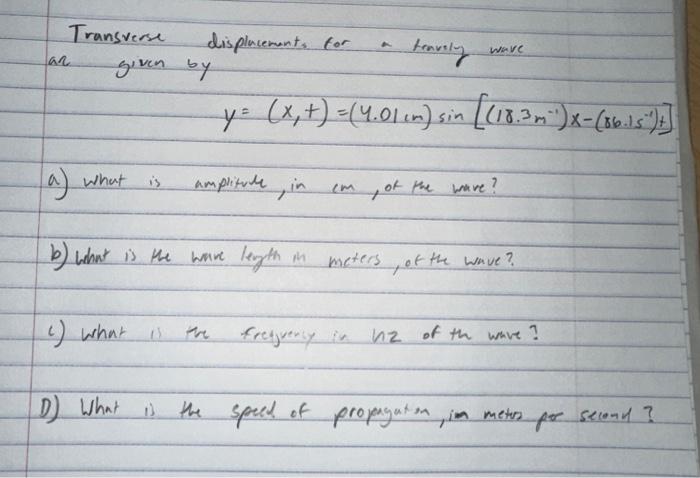 Transverse displacements for a travely wave
are given by
y = (x,t) = (4.01 cm) sin [(18.3 m⁻¹)x - (86.1 s⁻¹)t]
a) what is amplitude, in cm, of the wave?
b) what is the wave length in meters, of the wave?
c) what is the frequency in hz of the wave?
D) What is the speed of propagation, in meters per second?